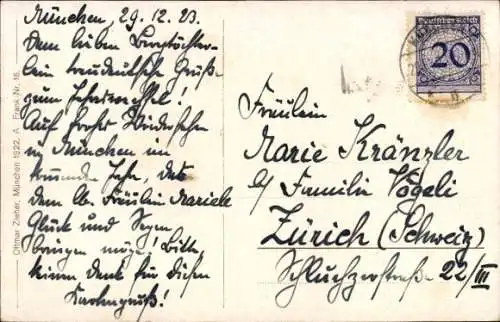 München, 29.12.23.
Dem lieben Bergtöchter-
lein treudeutsche Grüße
zum Jahreswechsel!
Auf frohes Wiedersehen
in München im
neuen Jahr, das
dem lb. Fräulein Mariele
Glück und Segen
bringen möge! Bitte
keinen Dank für diesen
Kartengruß!
Ottmar Zieher, München 1922. A Frank-Nr. 16.
Deutsches Reich
20
Fräulein
Marie Kränzler
b/ Familie Vögeli
Zürich (Schweiz)
Schluchzerstraße 22/III